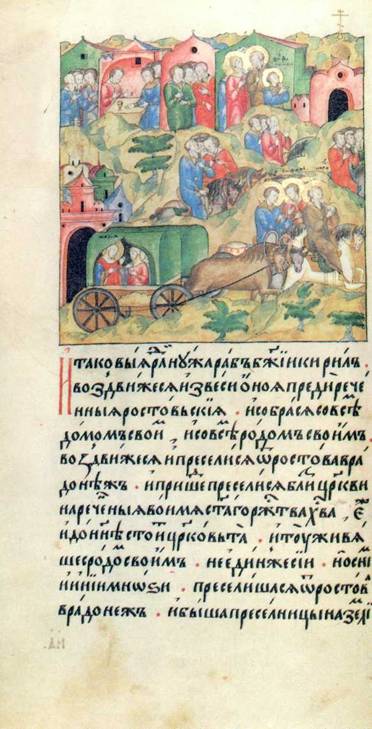 Таковыꙗ раⷣ нужа рабъ бж҃їи кирилъ .
воздвижесѧ извеси оноꙗ предирече
нныꙗ ростовьскиꙗ . исобрасѧ совсѣⷨ
домомъ своиⷨ , исовсѣⷨ родомъ своимъ
воздвижесѧ ипреселисѧ ѿ ростова вра
донѣжъ . ипришеⷣ преселисѧ блиⷥ цр҃кви
нареченыꙗ воимѧ ст҃аго рожⷣтва хв҃а , еⷤ
идонн҃ѣ стоиⷮ цр҃ковь та . итꙋ живѧ
ше сродоⷨ своимъ . неединже сїи . носниⷨ
инїи мноѕи . преселишасѧ ѿ ростов
врадонежъ . ибыша преселницы на земⷧи